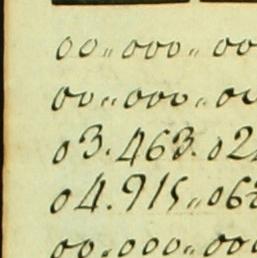 00,,000,,00
00,,000,,00
03.463.02
04.915,,06
00,,000,,000